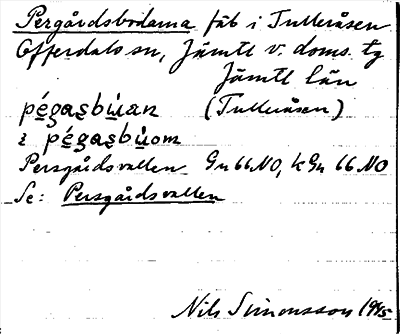 Pergårdsbodarna fäb i Tulleråsen
Offerdals sn, Jämtl v. doms. tg
Jämtl län
pégasbùan (Tulleråsen)
i pégasbùom
Persgårdsvallen Gn 66 NO, k Gn 66 NO
Se: Persgårdsvallen
Nils Simonsson 1945